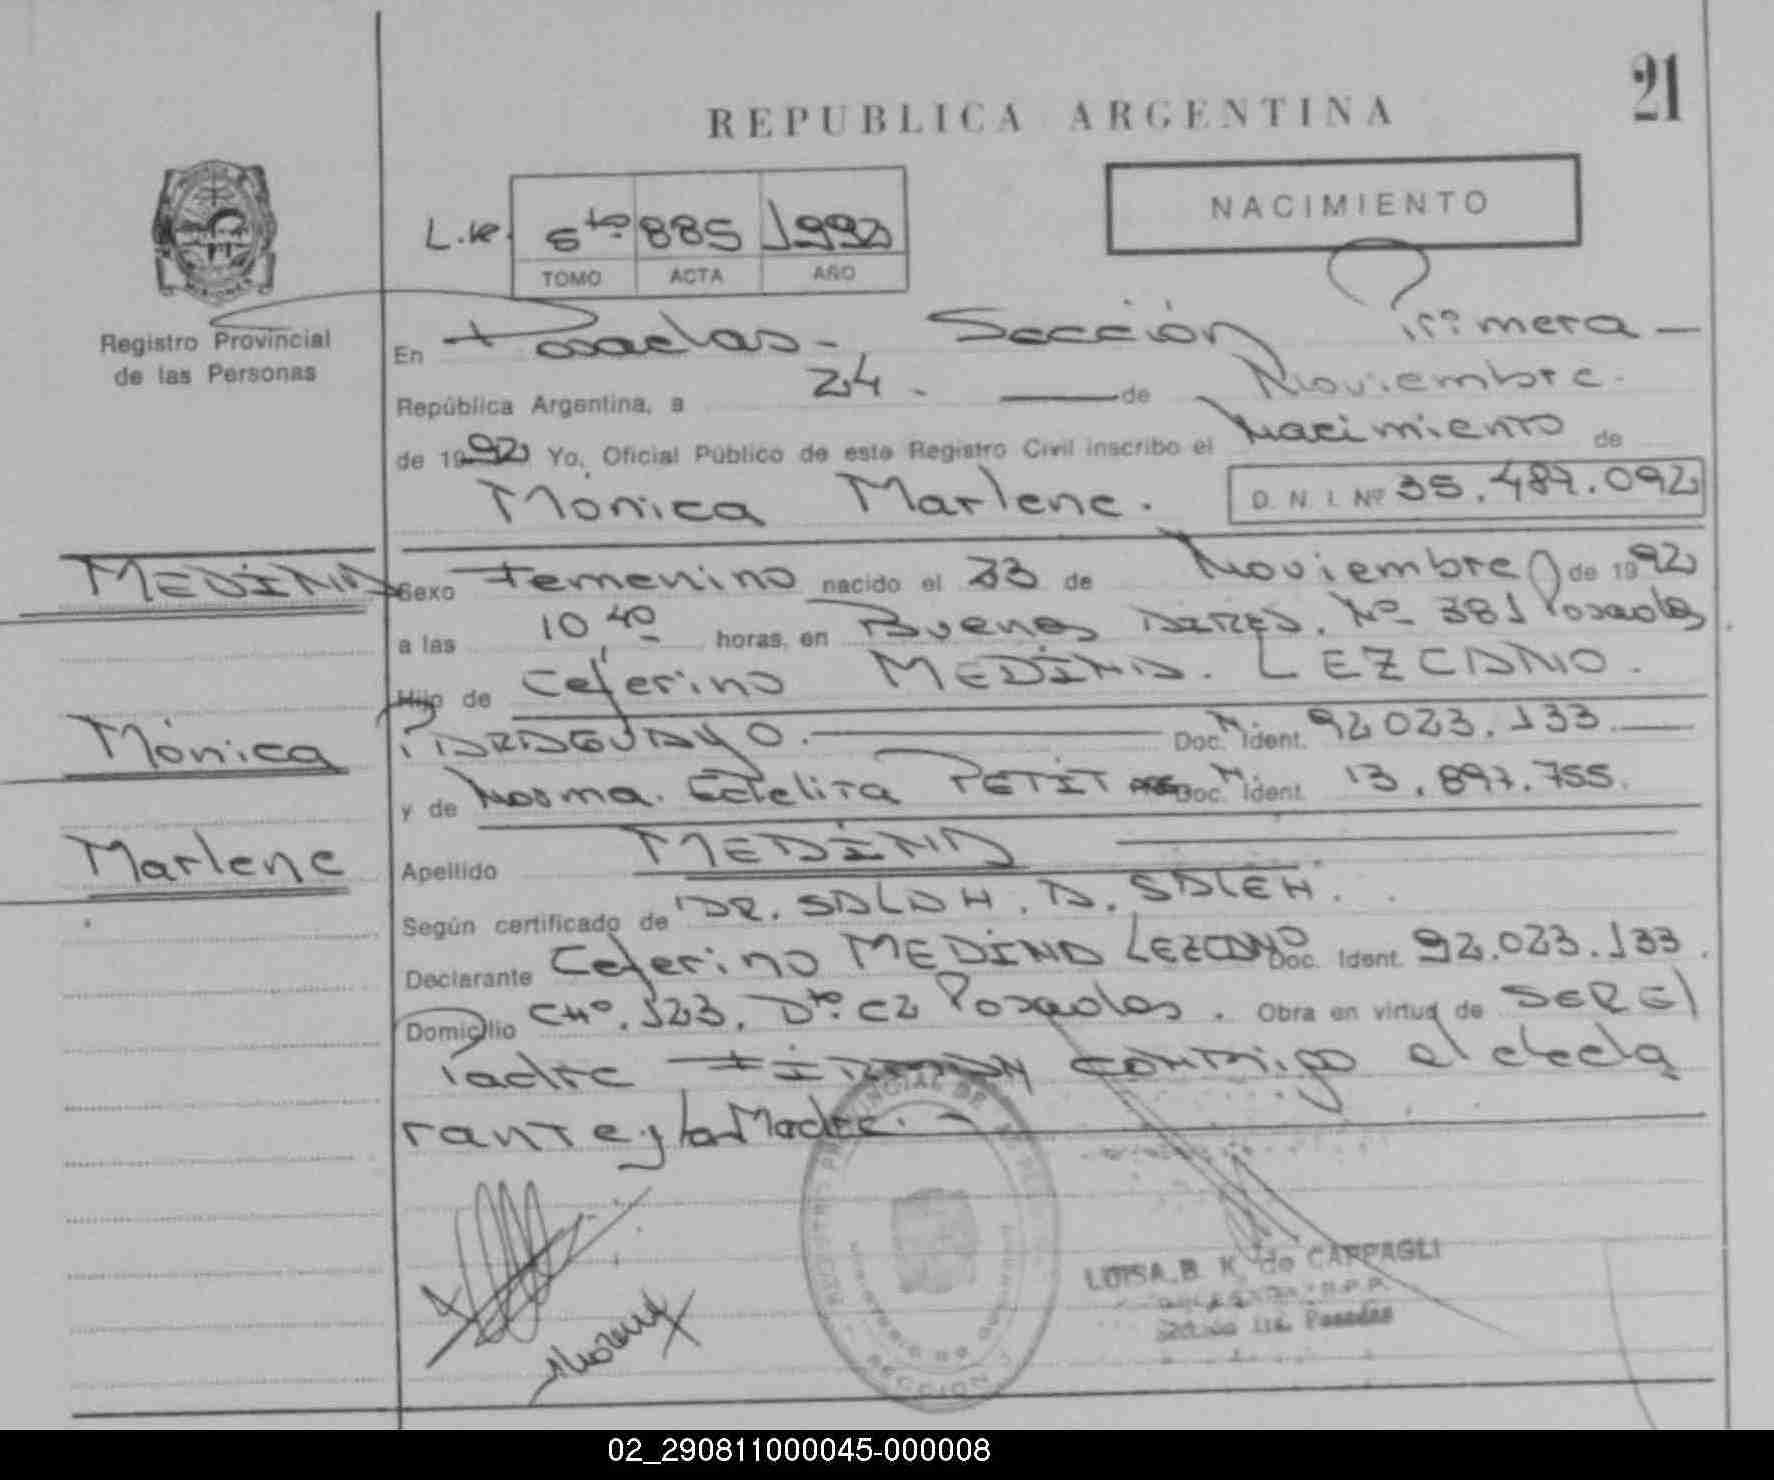 21
REPUBLICA ARGENTINA
NACIMIENTO
L.R. 5to 885 1992
TOMO ACTA AÑO
Registro Provincial
de las Personas
En Posadas - Sección Primera —
República Argentina, a 24. — de Noviembre.
de 1992 Yo, Oficial Público de este Registro Civil inscribo el Nacimiento de
Mónica Marlene. D. N. I. Nº 35.487.092
MEDINA
Sexo Femenino nacido el 33 de Noviembre de 1992
a las 10 40 horas, en Buenos AIRES. Nº 381 Posadas
Hijo de Ceferino MEDINA. LEZCANO.
Mónica
PARAGUAYO. — Doc. N Ident. 92 023.133 —
y de Norma. Edelira PETIT Doc. N Ident. 13.897.755.
Marlene
Apellido MEDINA
Según certificado de DR. SALAH. A. SALEH.
Declarante Ceferino MEDINA LEZCANO Doc. Ident. 92.023.133.
Domicilio CHº. 123. Dto. C2 Posadas. Obra en virtud de SER El
Padre FIRMAN conmigo el decla
rante y la Madre. -
REGISTRO PROVINCIAL DE LAS PERSONAS
SECCION 1
LUISA B. K. de CAPPAGLI
Sección 1ra. Posadas
02_290811000045-000008